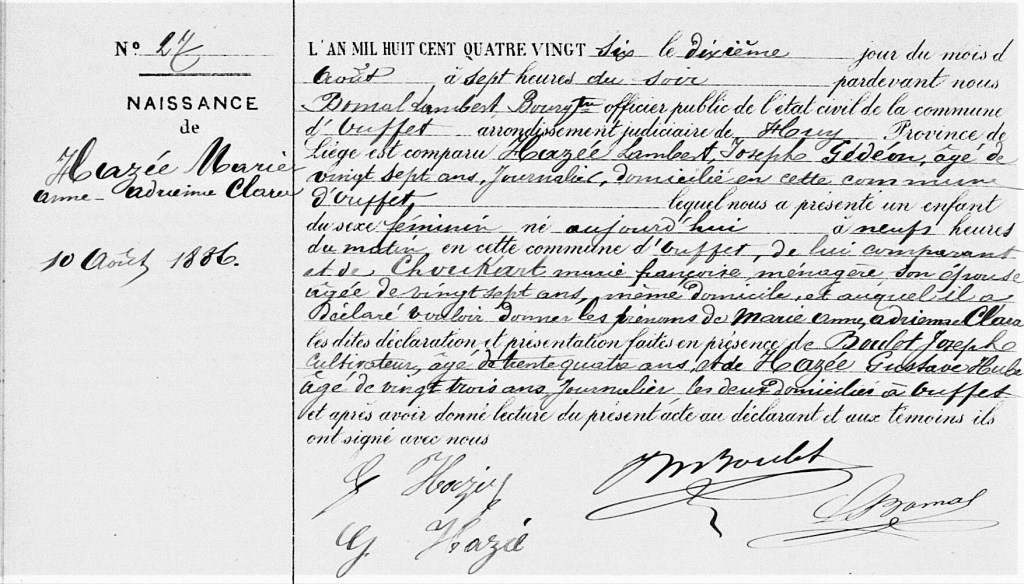 N° 27
NAISSANCE
de
Hazée Marie
anne - adrienne Clara
10 Août 1886.
L'AN MIL HUIT CENT QUATRE VINGT six le dixième jour du mois d
Août à sept heures du soir pardevant nous
Bomal Lambert, Bourgtre officier public de l'état civil de la commune
d'Ouffet arrondissement judiciaire de Huy Province de
Liège est comparu Hazée Lambert, Joseph Gédéon, âgé de
vingt sept ans, Journalier, domicilié en cette commune
d'Ouffet, lequel nous a présenté un enfant
du sexe féminin né aujourd'hui à neufs heures
du matin en cette commune d'Ouffet, de lui comparant
et de Choukart marie françoise, ménagère son épouse
âgée de vingt sept ans, même domicile, et auquel il a
Déclaré vouloir donner les prénoms de Marie anne, adrienne Clara
les dites déclaration et présentation faites en présence de Boulet Joseph
Cultivateur, âgé de trente quatre ans, et de Hazée Gustave Hube
âgé de vingt trois ans, Journalier, les deux domiciliés à Ouffet
et après avoir donné lecture du présent acte au déclarant et aux témoins ils
ont signé avec nous
G Hazée
Boulet
L Bomal
G. Hazée